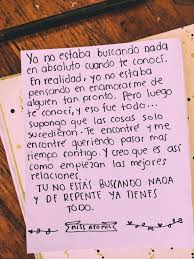 Yo no estaba buscando nada
en absoluto cuando te conocí.
En realidad, yo no estaba
pensando en enamorarme de
alguien tan pronto. Pero luego
te conocí, y eso fue todo...
supongo que las cosas solo
sucedieron. Te encontré y me
encontré queriendo pasar más
tiempo contigo. Y creo que es así
como empiezan las mejores
relaciones.
TU NO ESTÁS BUSCANDO NADA
Y DE REPENTE YA TIENES
TODO.
MISS ATOMIC